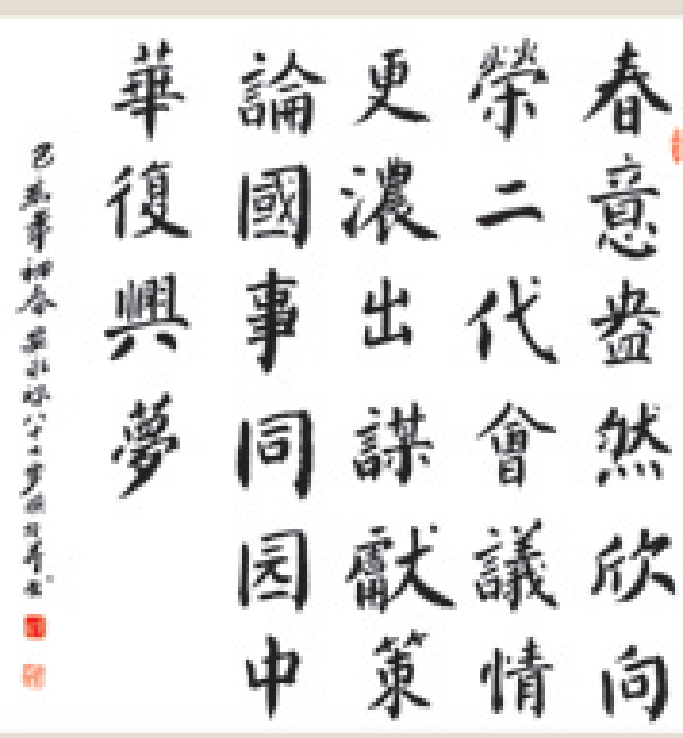 春意盎然欣向
榮二代會議情
更濃出謀獻策
論國事同园中
華復興夢